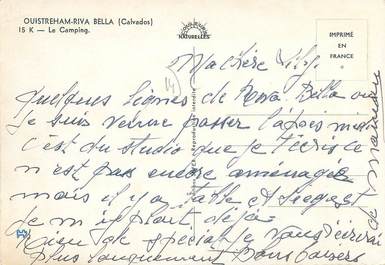 OUISTREHAM-RIVA BELLA (Calvados)
15 K — Le Camping.
NATURELLES
IMPRIMÉ
EN
FRANCE
14
Ma chère
quelques lignes de Riva Bella ou
je suis venue passer l'après midi
c'est du studio que je t'écris ce
n'est pas encore aménagée
mais il y a table et sieges
je m'y plait déjà
Rien de special je vous écrirai
plus longuement bons baisers
de Mamie